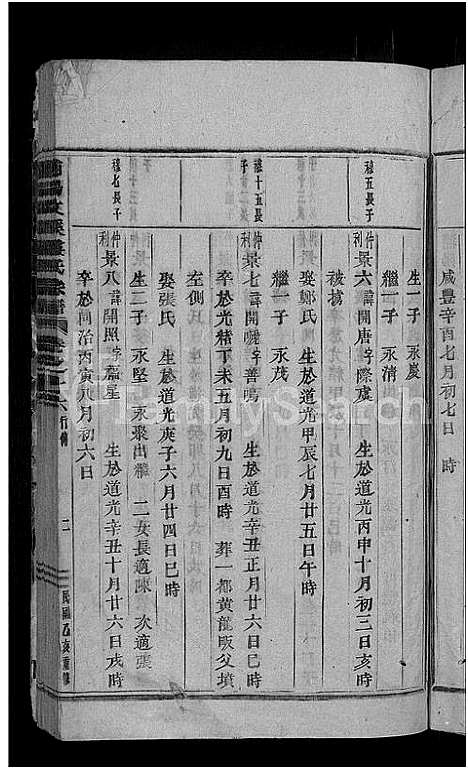 咸豐辛酉七月初七日 時
生一子 永慶
繼一子 永清
穗五長子
仲利 景六 諱開唐 字際虞 生於道光丙申十月初三日亥時
被擄
娶鄭氏 生於道光甲辰七月廿五日午時
繼一子 永茂
穗十五長子
仲利 景七 諱開曬 字善鳴 生於道光辛丑正月廿六日巳時
卒於光緒丁未五月初九日酉時 葬一都黃龍畈父墳
左側
娶張氏 生於道光庚子六月廿四日巳時
生二子 永堅 永聚出繼 二女長適陳 次適張
穗七長子
仲利 景八 諱開照 字蕭星 生於道光辛丑十月廿六日戌時
卒於同治丙寅八月初六日
氏宗譜 卷之 六 行傳 二 民國乙亥重修
FamilySearch